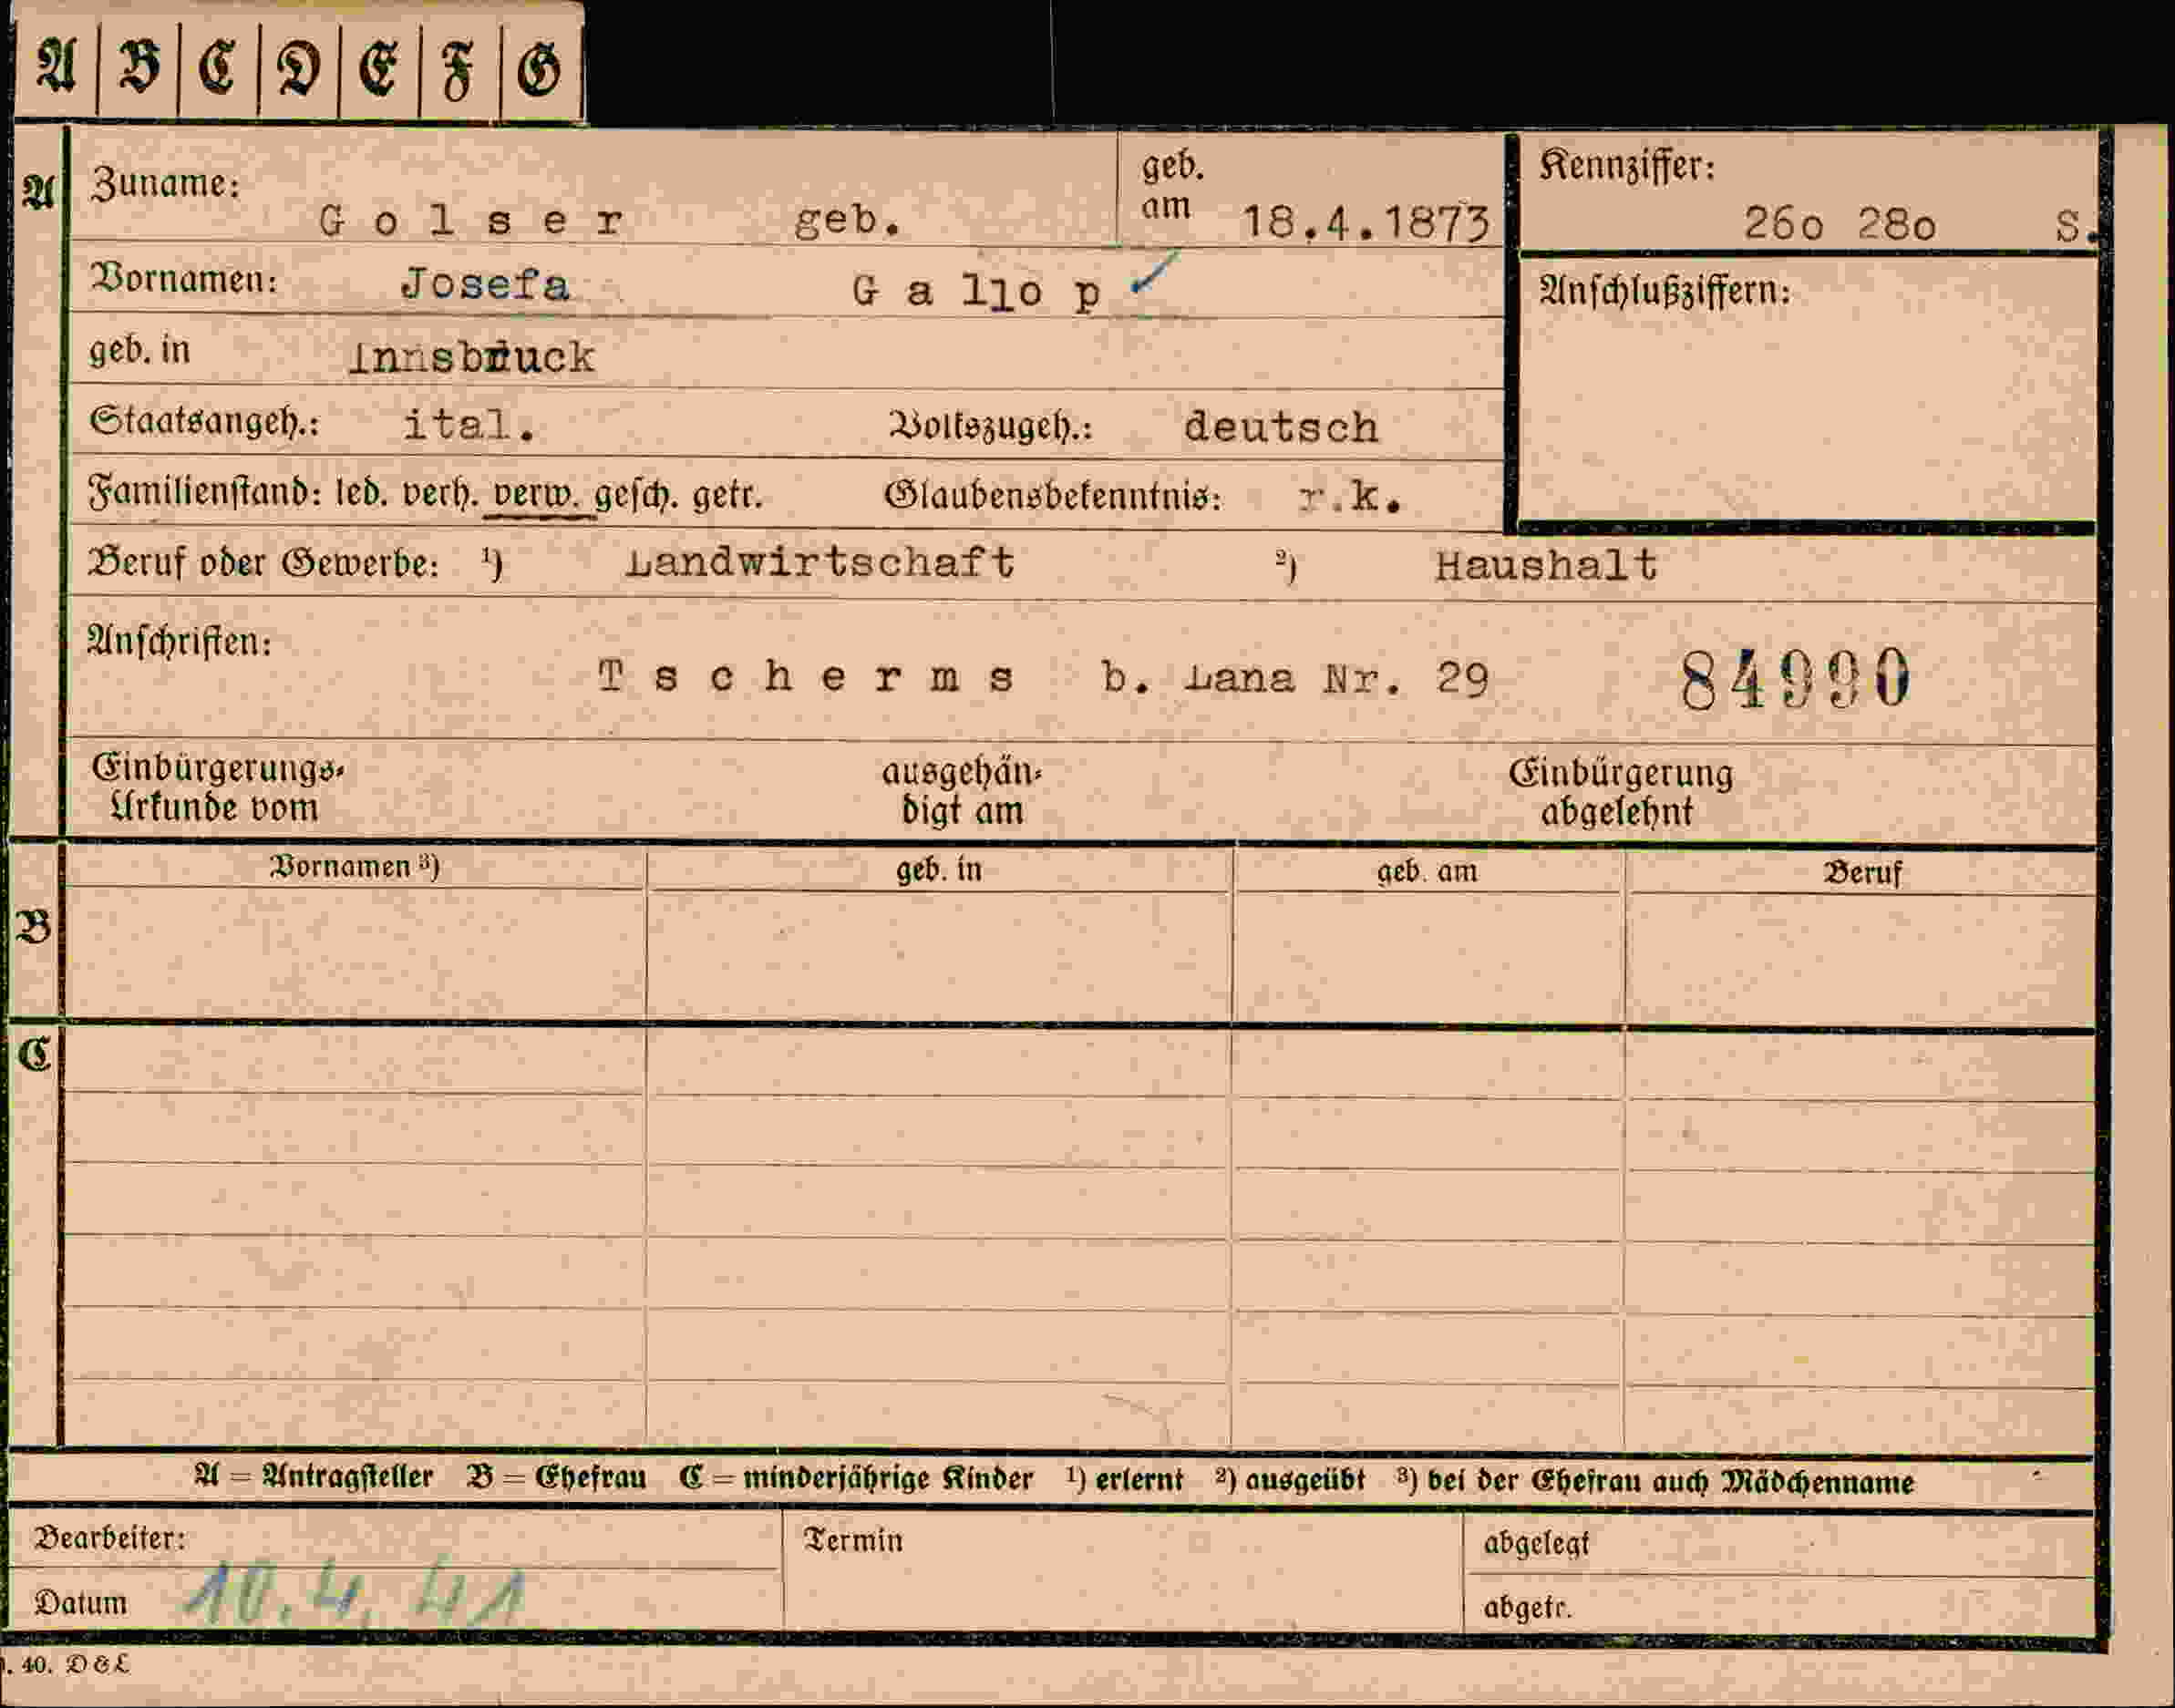 A B C D E F G
A
Zuname: Golser geb. geb. am 18.4.1873
Kennziffer: 26o 28o S.
Vornamen: Josefa Gallop
Anschlußziffern:
geb. in Innsbruck
Staatsangeh.: ital. Volkszugeh.: deutsch
Familienstand: led. verh. verw. gesch. getr. Glaubensbekenntnis: r.k.
Beruf oder Gewerbe: ¹) Landwirtschaft ²) Haushalt
Anschriften:
Tscherms b. Lana Nr. 29 84990
Einbürgerungs- ausgehän- Einbürgerung
Urkunde vom digt am abgelehnt
Vornamen ³) geb. in geb. am Beruf
B
C
A = Antragsteller B = Ehefrau C = minderjährige Kinder ¹) erlernt ²) ausgeübt ³) bei der Ehefrau auch Mädchenname
Bearbeiter: Termin abgelegt
Datum 10.4.41 abgetr.
. 40. D&L